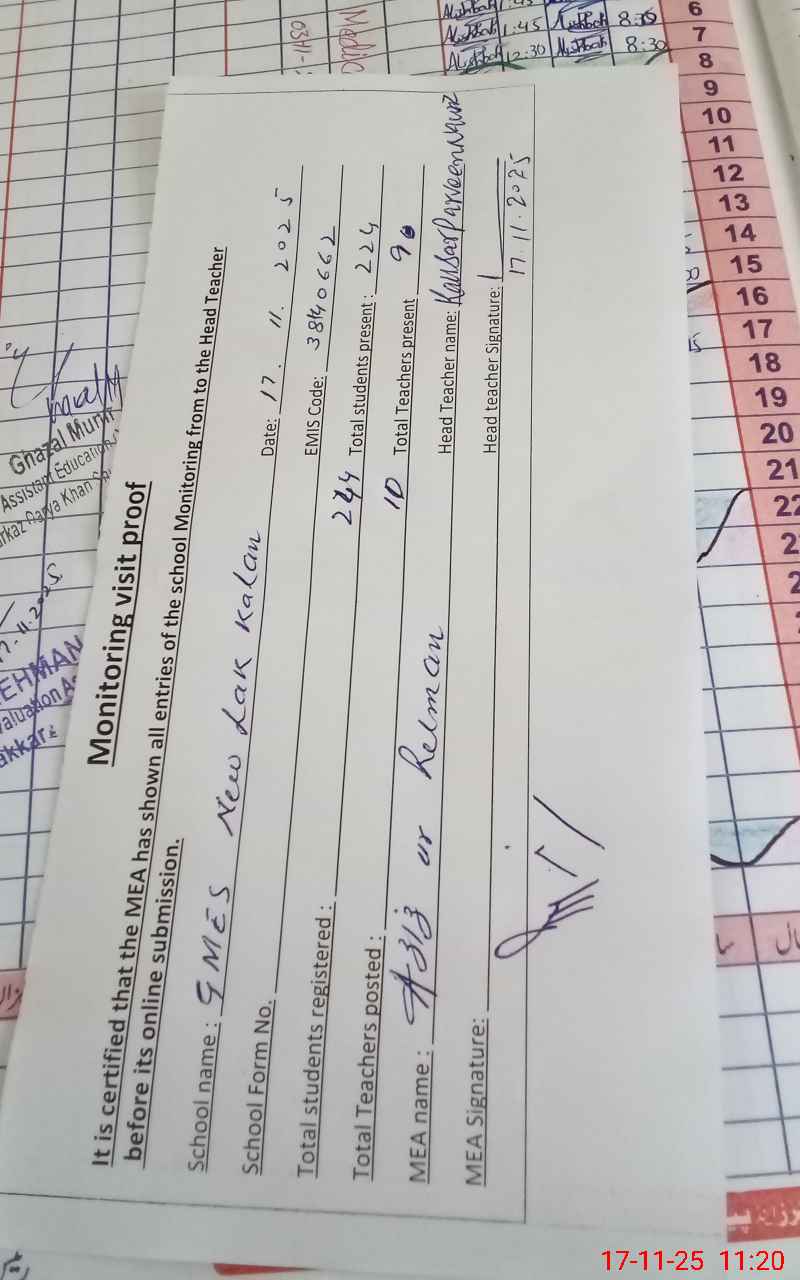 Monitoring visit proof
It is certified that the MEA has shown all entries of the school Monitoring from to the Head Teacher
before its online submission.
School name : GMES New Lak Kalan
School Form No. Date: 17. 11. 2025
EMIS Code: 38140662
Total students registered : 244 Total students present : 224
Total Teachers posted : 10 Total Teachers present 90
MEA name : Aziz ur Rehman Head Teacher name: Kausar Parveen
MEA Signature: Head teacher Signature:
17.11.2025
Ghazal Munir
Assistant Education
Markaz Darya Khan
17.11.2025
EHMAN
valuation As
akkar
Medic
0341-
1:45 8:30
12:30 8:30
6
7
8
9
10
11
12
13
14
15
16
17
18
19
20
21
22
2
2
15
17-11-25 11:20